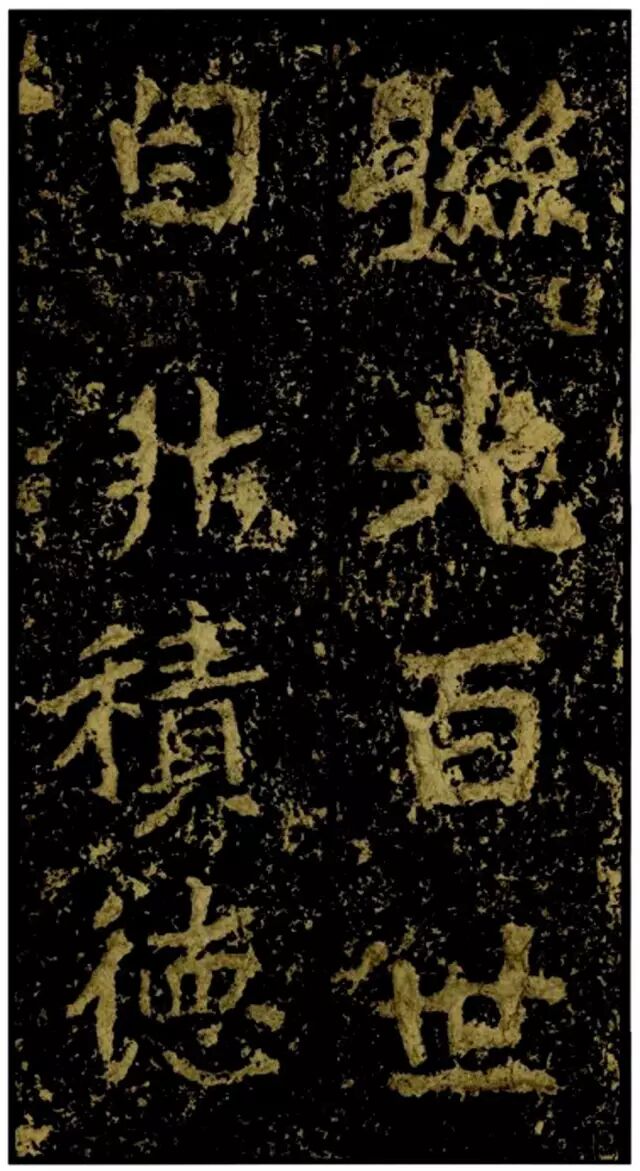 聯光百世
自非積德